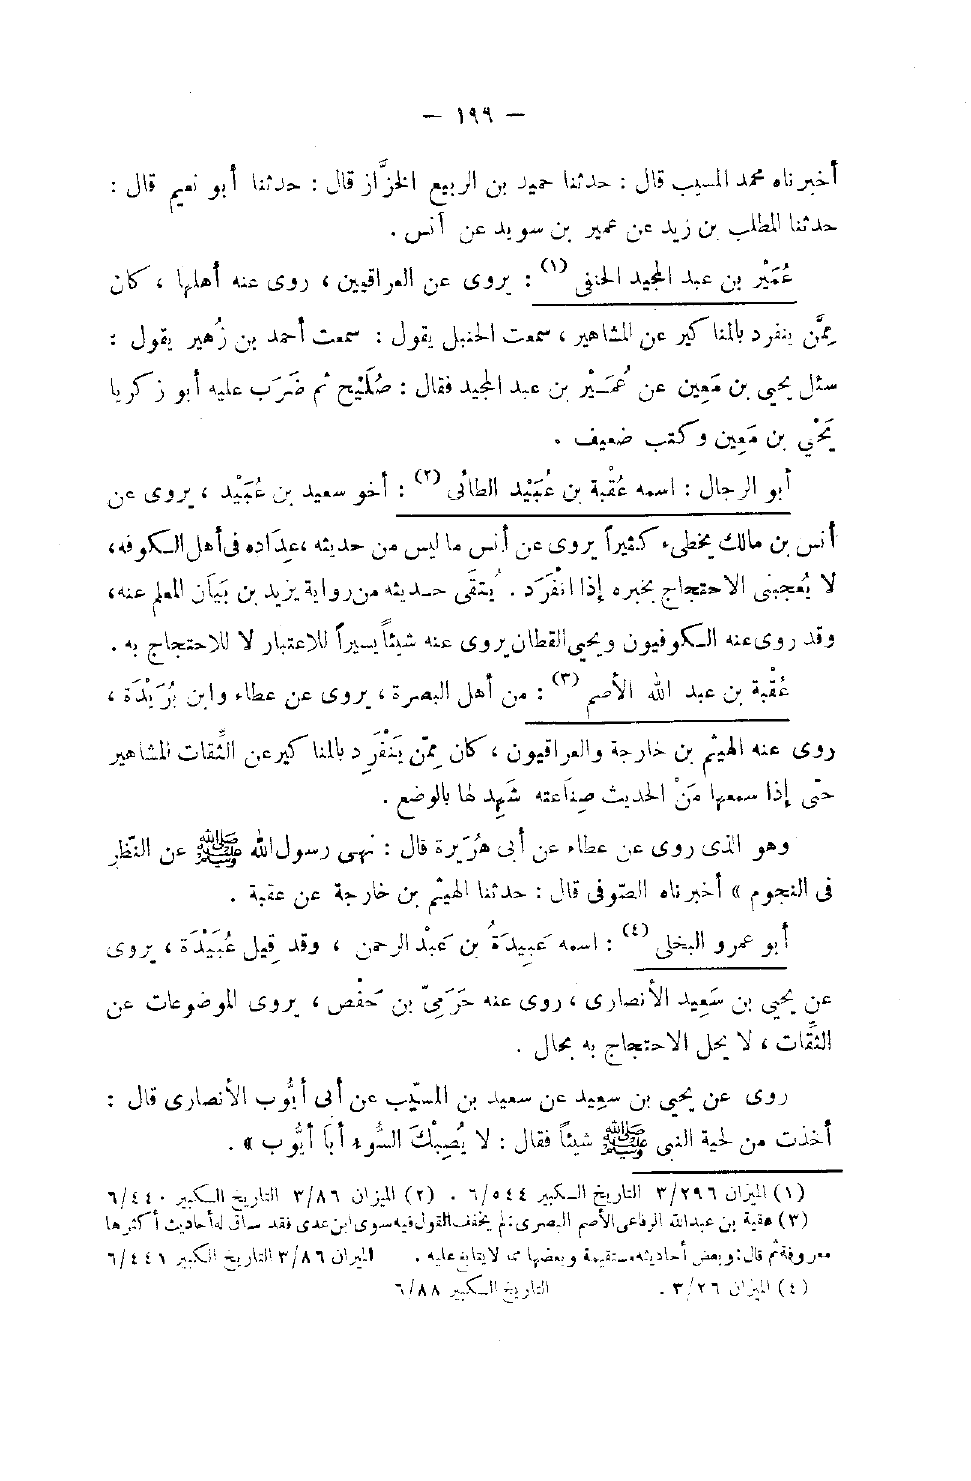 — ١٩٩ —
أخبرناه محمد المسيب قال : حدثنا حميد بن الربيع الخزَّاز قال : حدثنا أبو نعيم قال :
حدثنا المطلب بن زيد عن عمير بن سويد عن أنس .
عُمَيْر بن عبد المجيد الحنفى (١) : يروى عن العراقيين ، روى عنه أهلها ، كان
مِمَّن ينفرد بالمناكير عن المشاهير ، سمعت الحنبل يقول : سمعت أحمد بن زُهير يقول :
سئل يحيى بن مَعِين عن عُمَيْر بن عبد المجيد فقال : صُلَيْح ثم ضَرَب عليه أبو زكريا
يَحْيَ بن مَعِين وكتب ضعيف .
أبو الرجال : اسمه عُقْبة بن عُبَيْد الطائى (٢) : أخو سعيد بن عُبَيْد ، يروى عن
أنس بن مالك يخطىء كثيراً يروى عن أنس ما ليس من حديثه ، عِدَاده فى أهل الكوفه ،
لا يُعجبنى الاحتجاج بخبره إذا انْفَرَد . يُتقَى حديثه من رواية يزيد بن بَيَان المعلم عنه ،
وقد روى عنه الكوفيون ويحيى القطان يروى عنه شيئاً يسيراً للاعتبار لا للاحتجاج به .
عُقْبة بن عبد الله الأصم (٣) : من أهل البصرة ، يروى عن عطاء وابن بُرَيْدَة ،
روى عنه الهيثم بن خارجة والعراقيون ، كان مِمّن يَنْفَرِد بالمناكير عن الثِّقات المشاهير
حتّى إذا سمعها مَنْ الحديث صِنَاعته شَهِد لها بالوضع .
وهو الذى روى عن عطاء عن أبى هُرَيرة قال : نهى رسول الله ﷺ عن النّظر
فى النجوم » أخبرناه الصّوفى قال : حدثنا الهيثم بن خارجة عن عقبة .
أبو عمرو البخلى (٤) : اسمه عَبِيدَةُ بن عَبْد الرحمن ، وقد قِيل عُبَيْدَة ، يروى
عن يحيى بن سَعِيد الأنصارى ، روى عنه حَرَمِىّ بن حَفْص ، يروى الموضوعات عن
الثِّقات ، لا يحل الاحتجاج به بحال .
روى عن يحيى بن سعيد عن سعيد بن المسيّب عن أبى أيُّوب الأنصارى قال :
أخذت من لحية النبى ﷺ شيئاً فقال : لا يُصِبْكَ السُّوء أبَا أيُّوب » .
(١) الميزان ٣/٢٩٦ التاريخ الكبير ٦/٥٤٤ . (٢) الميزان ٣/٨٦ التاريخ الكبير ٦/٤٤٠
(٣) عقبة بن عبدالله الرفاعى الأصم البصرى : لم يخفف القول فيه سوى ابن عدى فقد ساق له أحاديث أكثرها
معروفة ثم قال : وبعض أحاديثه مستقيمة وبعضها مما لا يتابع عليه . الميزان ٣/٨٦ التاريخ الكبير ٦/٤٤١
(٤) الميزان ٣/٢٦ . التاريخ الكبير ٦/٨٨